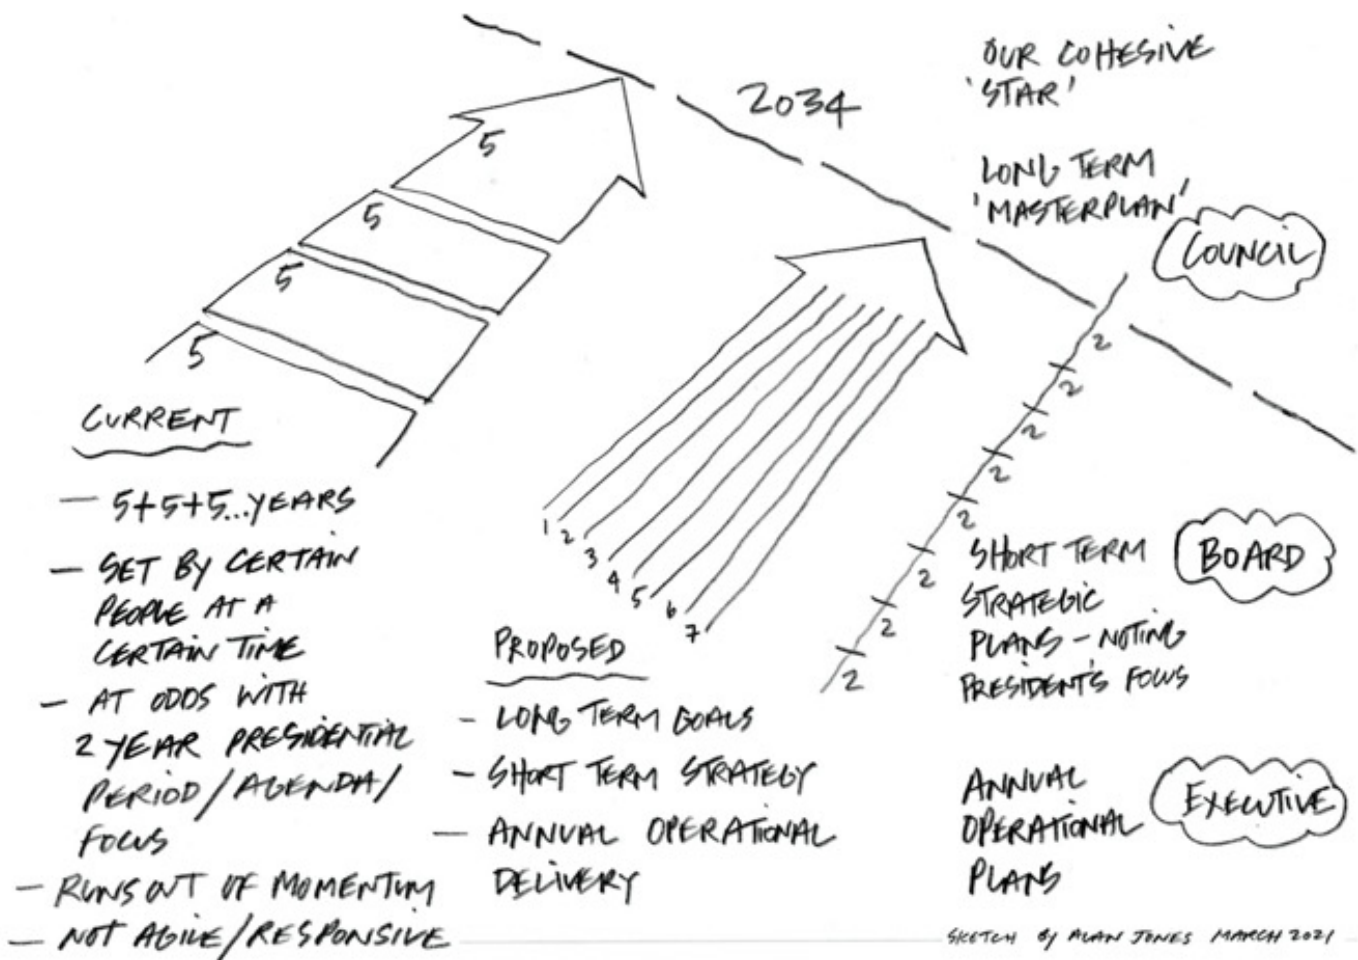 2034
OUR COHESIVE
'STAR'
LONG TERM
'MASTERPLAN'
COUNCIL
5
5
5
5
CURRENT
— 5+5+5...YEARS
— SET BY CERTAIN
PEOPLE AT A
CERTAIN TIME
— AT ODDS WITH
2 YEAR PRESIDENTIAL
PERIOD/AGENDA/
FOCUS
— RUNS OUT OF MOMENTUM
— NOT AGILE/RESPONSIVE
1
2
3
4
5
6
7
PROPOSED
— LONG TERM GOALS
— SHORT TERM STRATEGY
— ANNUAL OPERATIONAL
DELIVERY
2
2
2
2
2
2
2
2
SHORT TERM
STRATEGIC
PLANS – NOTING
PRESIDENT'S FOCUS
BOARD
ANNUAL
OPERATIONAL
PLANS
EXECUTIVE
SKETCH BY ALAN JONES MARCH 2021